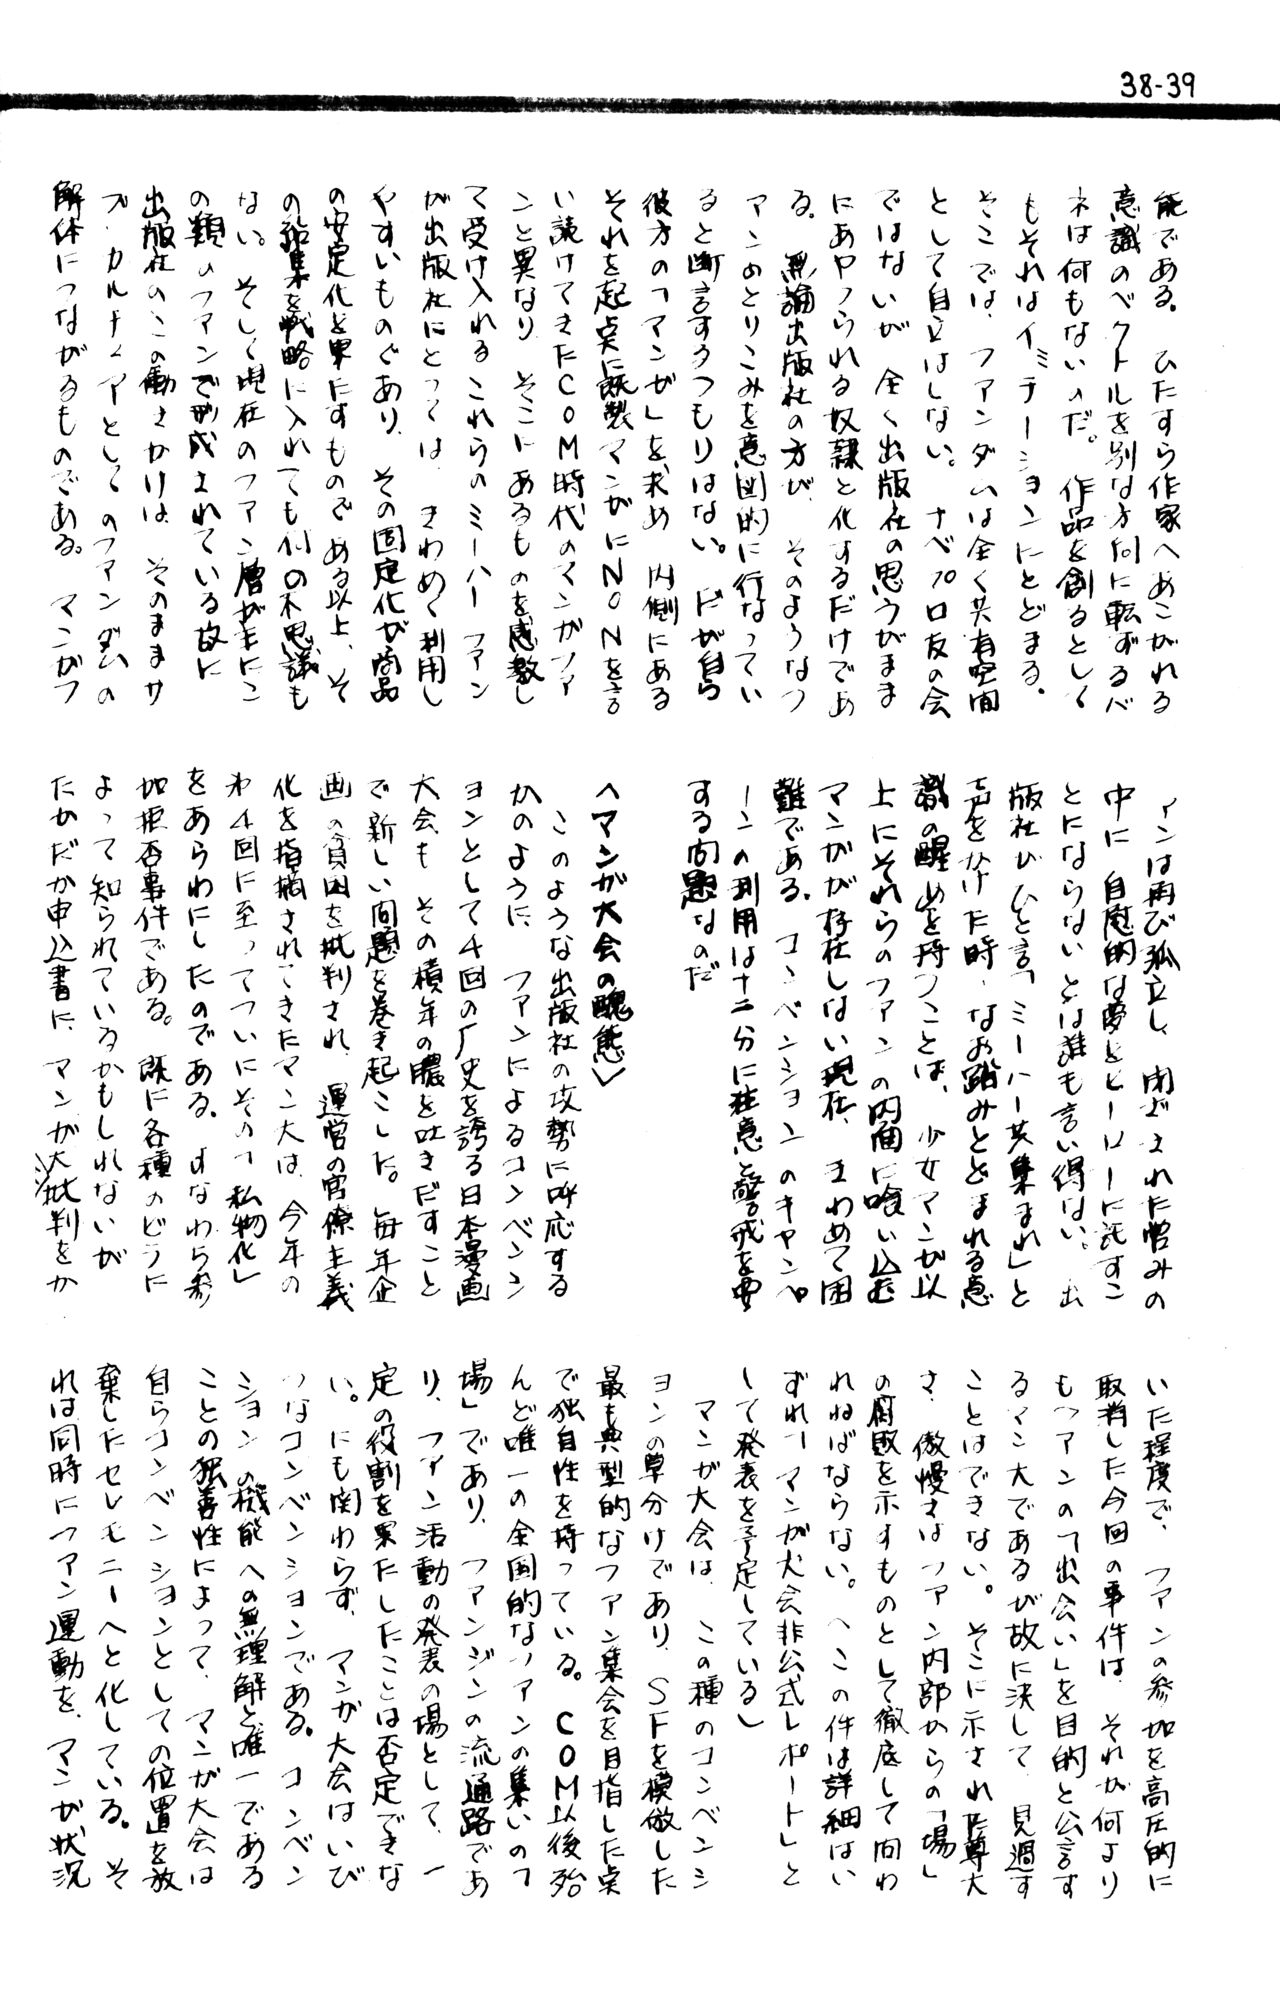 38-39
能である。 ひたすら作家へあこがれる
意識のベクトルを別な方向に転ずるバ
ネは何もないのだ。 作品を創るとして
もそれはイミテーションにとどまる。
そこでは、ファンダムは全く共有空間
として自立はしない。 ナベプロ友の会
ではないが 全く出版社の思うがまま
にあやつられる奴隷と化するだけであ
る。 無論出版社の方が、そのようなフ
ァンのとりこみを意図的に行なってい
ると断言するつもりはない。 だが自ら
彼方の「マンガ」を求め 内側にある
それを起点に既製マンガにNONを言
い続けてきたCOM時代のマンガファ
ンと異なり そこにあるものを感激し
て受け入れるこれらのミーハー ファン
が出版社にとっては、きわめて利用し
やすいものであり、その固定化が商品
の安定化を果たすものである以上、そ
の結集を戦略に入れても何の不思議も
ない。 そして現在のファン層が主にこ
の類のファンで形成されている故に
出版社のこの働きかけは、そのままサ
ブ・カルチュアとしてのファンダムの
解体につながるものである。 マンガフ
ァンは再び孤立し、閉ざされた営みの
中に 自慰的な夢をヒーローに託すこ
とにならないとは誰も言い得ない。 出
版社がひと言「ミーハー共集まれ」と
声をかけた時、なお踏みとどまれる意
識の醒めを持つことは、少女マンガ以
上にそれらのファンの内面に喰い込む
マンガが存在しない現在、きわめて困
難である。 コンベンションのキャンペ
ーンの利用は十二分に注意と警戒を要
する問題なのだ
〈マンガ大会の醜態〉
このような出版社の攻勢に呼応する
かのように、ファンによるコンベンシ
ョンとして4回の厂史を誇る日本漫画
大会も その積年の膿を吐きだすこと
で新しい問題を巻き起こした。 毎年企
画の貧困を批判され、運営の官僚主義
化を指摘されてきたマン大は、今年の
第4回に至ってついにその「私物化」
をあらわにしたのである。 すなわち参
加拒否事件である。 既に各種のビラに
よって知られているかもしれないが
たかだか申込書に、マンガ大批判をか
いた程度で、ファンの参加を高圧的に
取消した今回の事件は、それが何より
もファンの「出会い」を目的と公言す
るマン大であるが故に決して、見過す
ことはできない。 そこに示された尊大
さ、傲慢さはファン内部からの「場」
の腐敗を示すものとして徹底して問わ
れねばならない。 へこの件は詳細はい
ずれ「マンガ大会非公式レポート」と
して発表を予定している」
マンガ大会は、この種のコンベンシ
ョンの草分けであり、SFを模倣した
最も典型的なファン集会を目指した点
で独自性を持っている。 COM以後殆
んど唯一の全国的なファンの集いの「
場」であり、ファンジンの流通路であ
り、ファン活動の発表の場として、一
定の役割を果たしたことは否定できな
い。 にも関わらず、マンガ大会はいび
つなコンベンションである。 コンベン
ションの機能への無理解と唯一である
ことの独善性によって、マンガ大会は
自らコンベンションとしての位置を放
棄したセレモニーへと化している。 そ
れは同時にファン運動を、マンガ状況